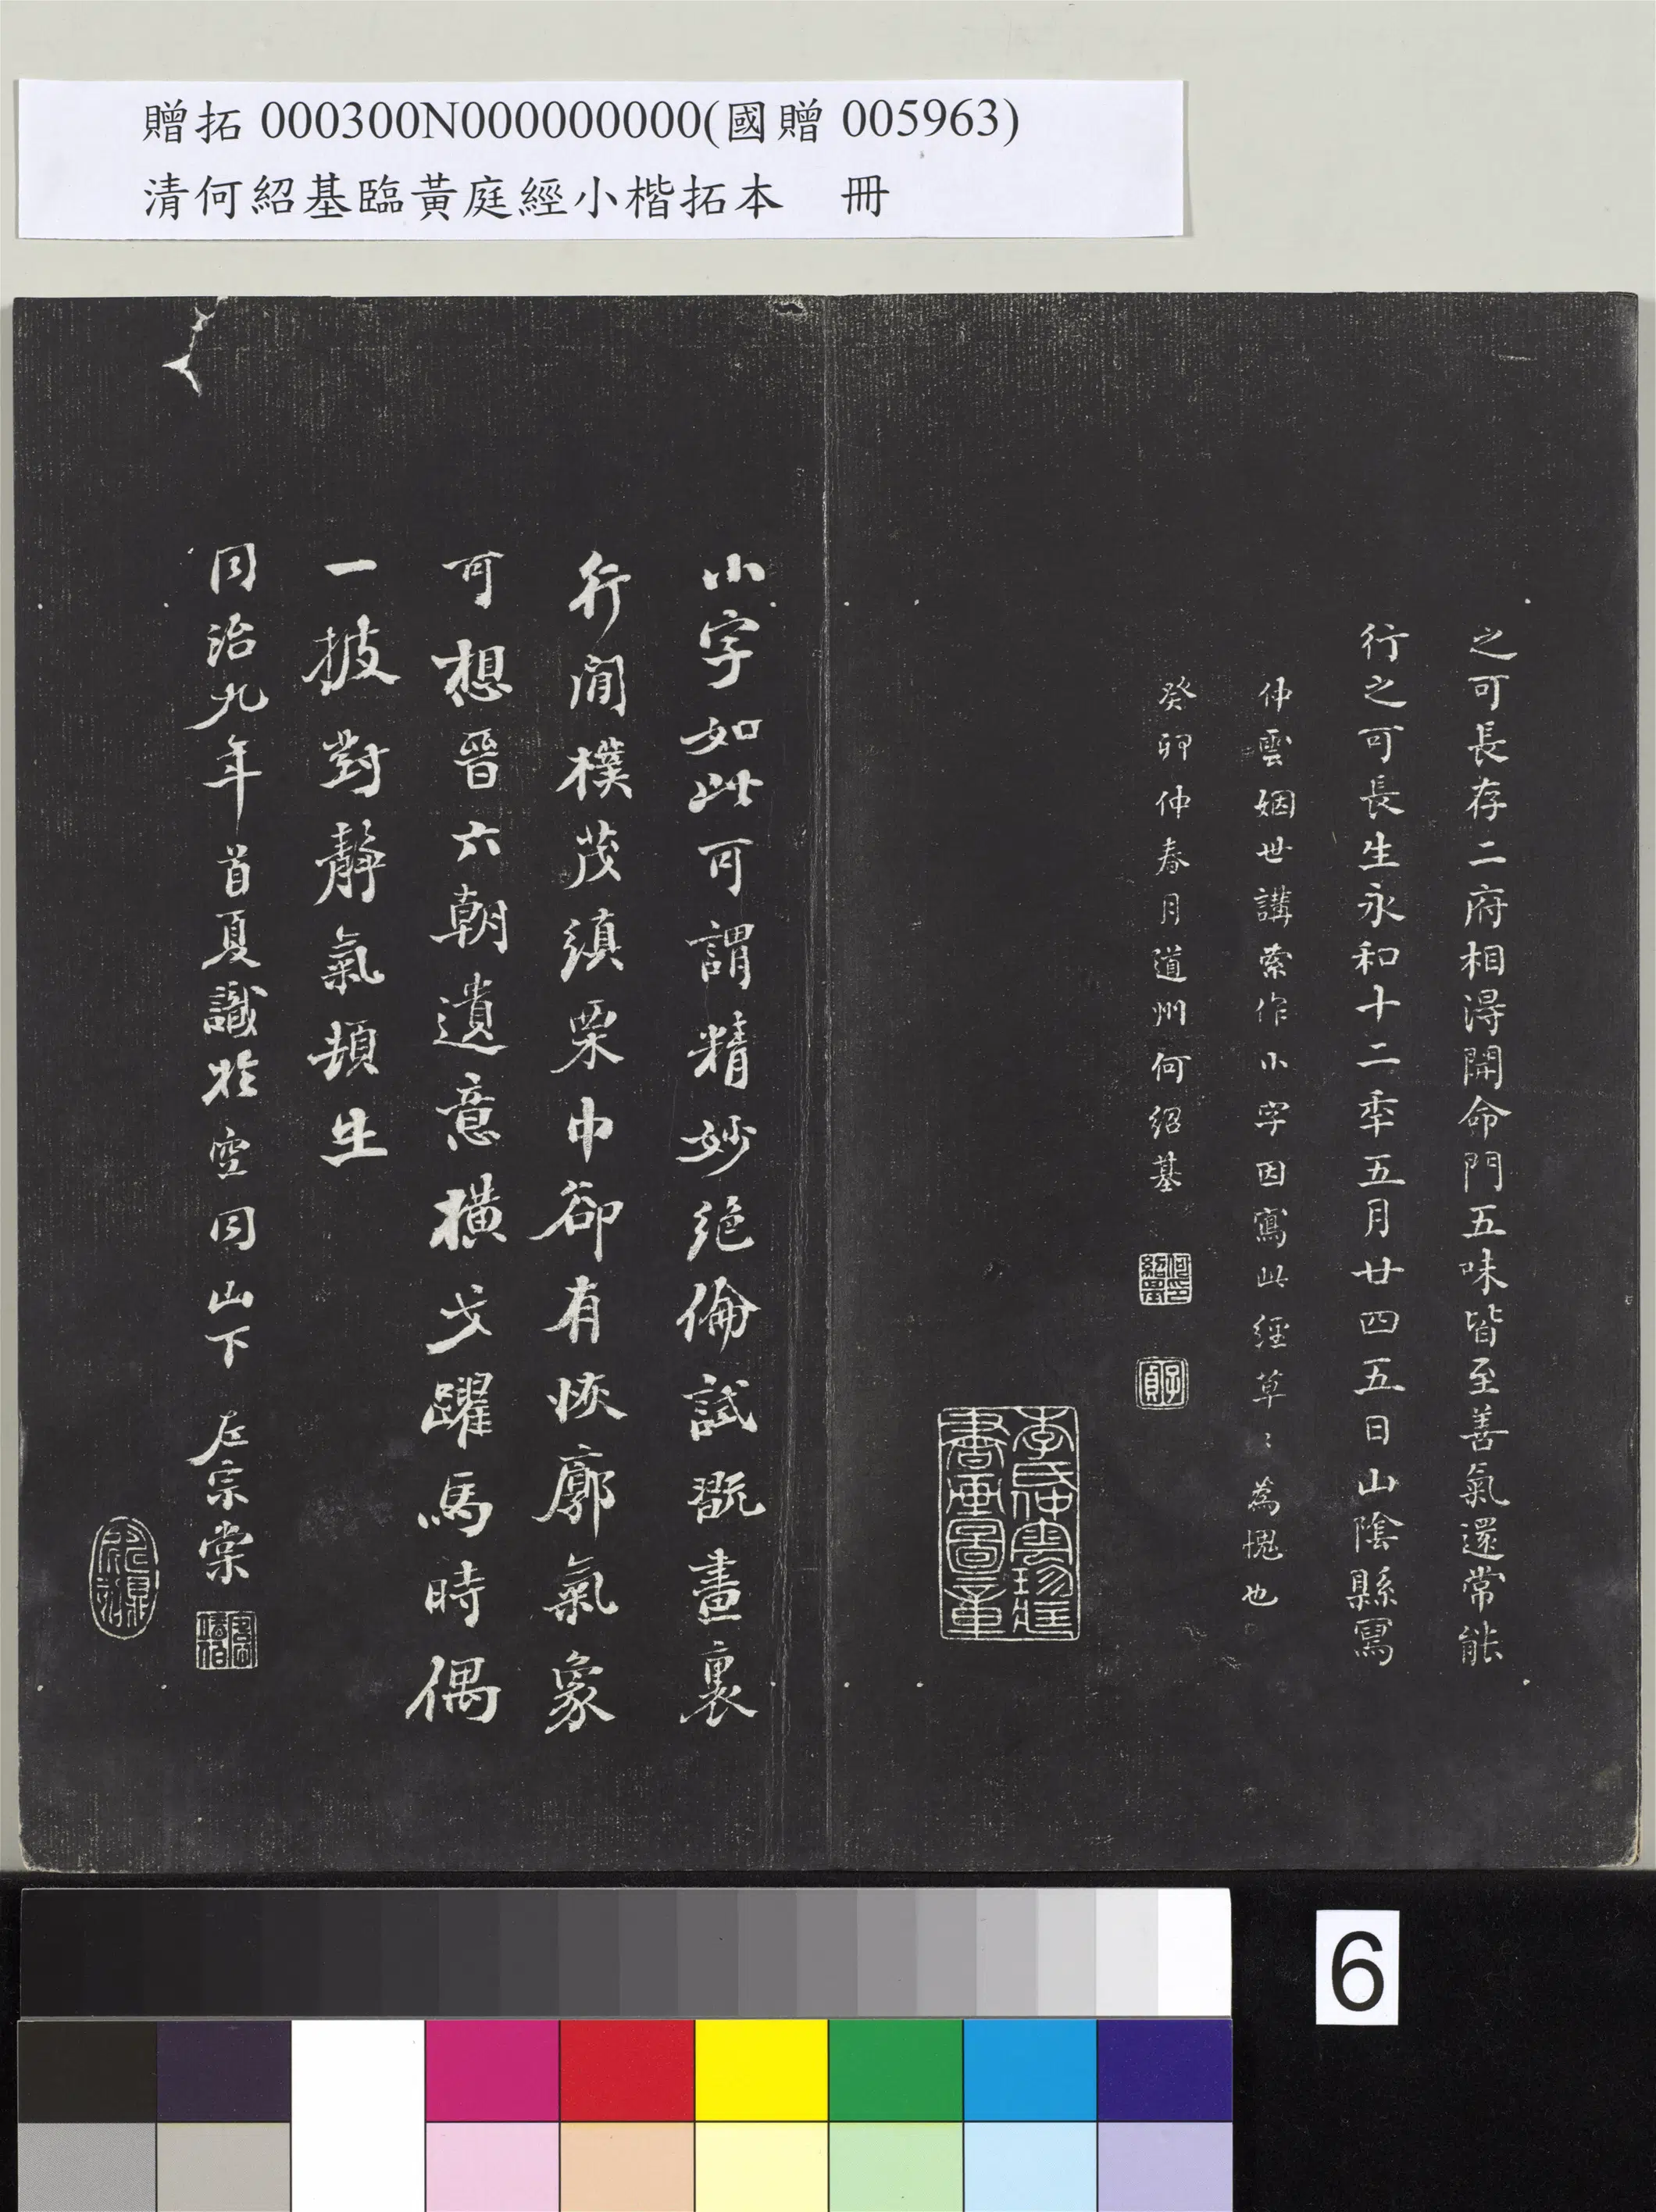 贈拓 000300N000000000(國贈 005963)
清何紹基臨黃庭經小楷拓本 冊
之可長存二府相淂開命門五味皆至善氣還常能
行之可長生永和十二秊五月廿四五日山陰縣寫
仲雲姻世講索作小字因寫此經草〻為愧也
癸卯仲春月道州何紹基
何紹基印
子貞
李氏仲雲珍藏書畫圖章
小字如此可謂精妙絶倫試翫畫裏
行閒樸茂縝栗中卻有恢廓氣象
可想晉六朝遺意橫戈躍馬時偶
一披對靜氣頓生
同治九年首夏識於空同山下 左宗棠